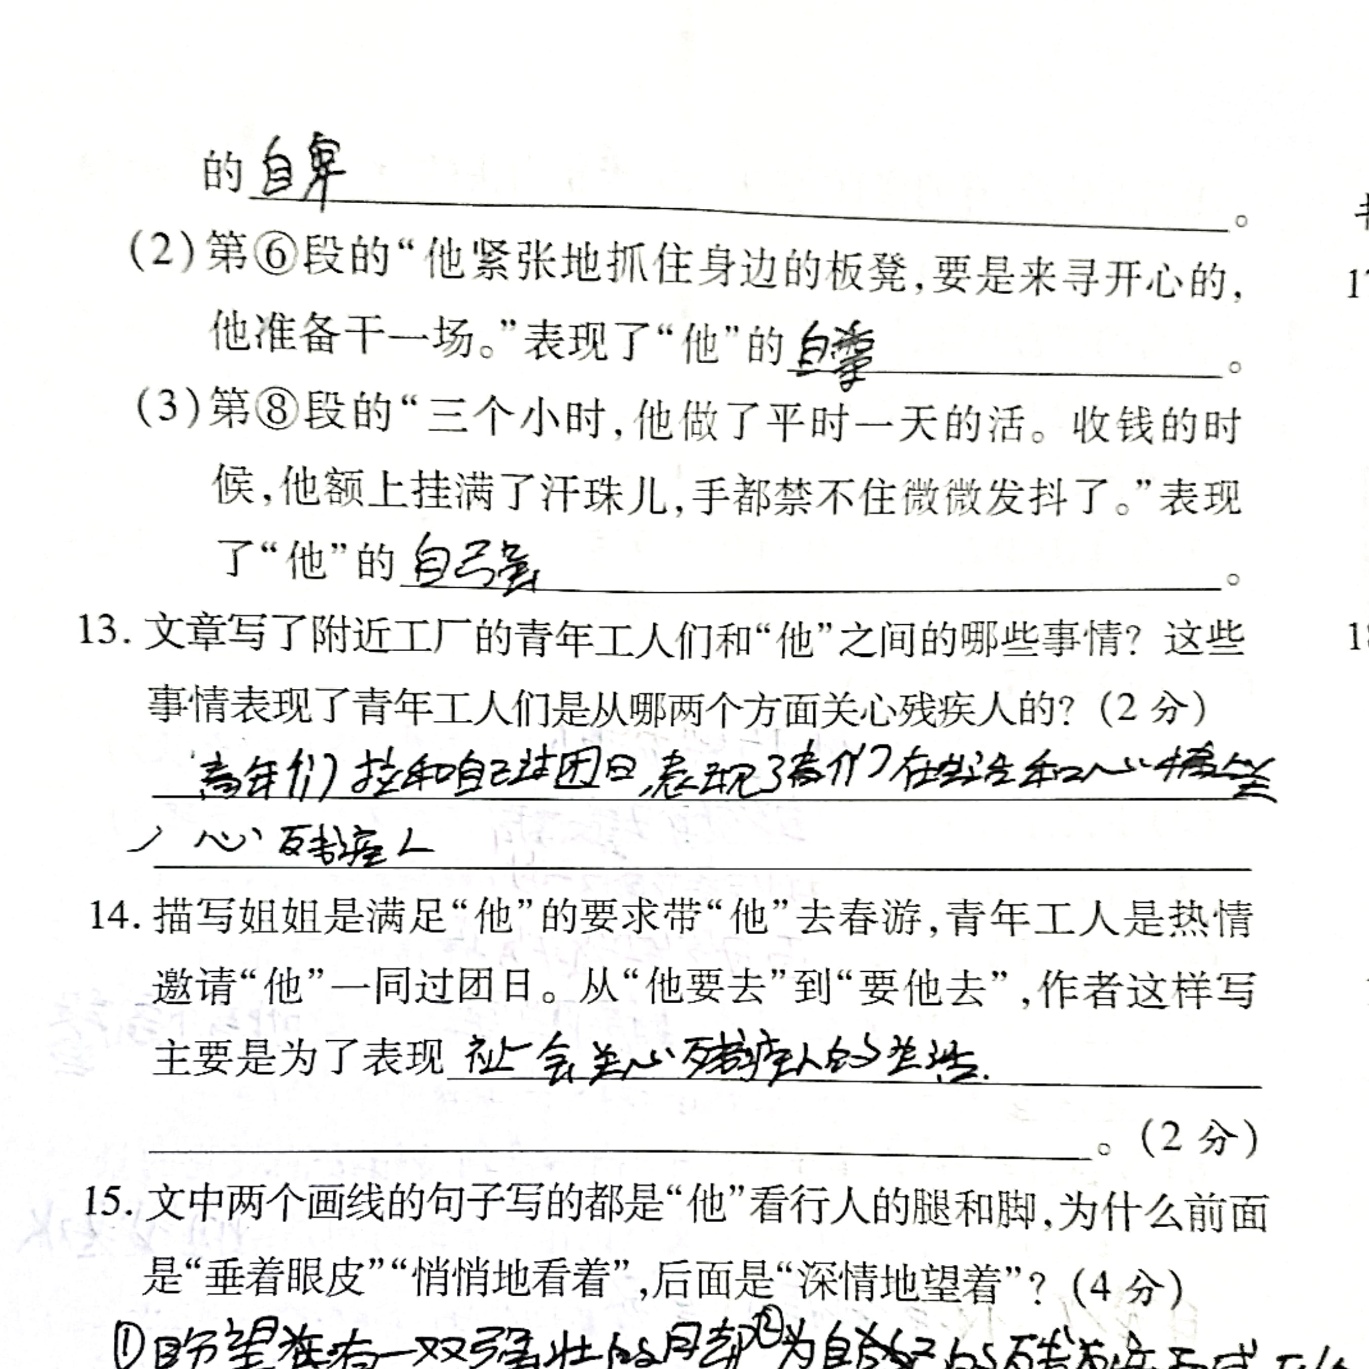 的自卑。
(2)第⑥段的“他紧张地抓住身边的板凳,要是来寻开心的,
他准备干一场。”表现了“他”的自尊。
(3)第⑧段的“三个小时,他做了平时一天的活。收钱的时
候,他额上挂满了汗珠儿,手都禁不住微微发抖了。”表现
了“他”的自强。
13. 文章写了附近工厂的青年工人们和“他”之间的哪些事情? 这些
事情表现了青年工人们是从哪两个方面关心残疾人的?(2分)
青年们 和自己过团日,表现了青们在生活和心
心残疾人
14. 描写姐姐是满足“他”的要求带“他”去春游,青年工人是热情
邀请“他”一同过团日。从“他要去”到“要他去”,作者这样写
主要是为了表现 社会关心残疾人的生活.
。(2分)
15. 文中两个画线的句子写的都是“他”看行人的腿和脚,为什么前面
是“垂着眼皮”“悄悄地看着”,后面是“深情地望着”?(4分)
①盼望 有一双强壮的 ②为自
17
18